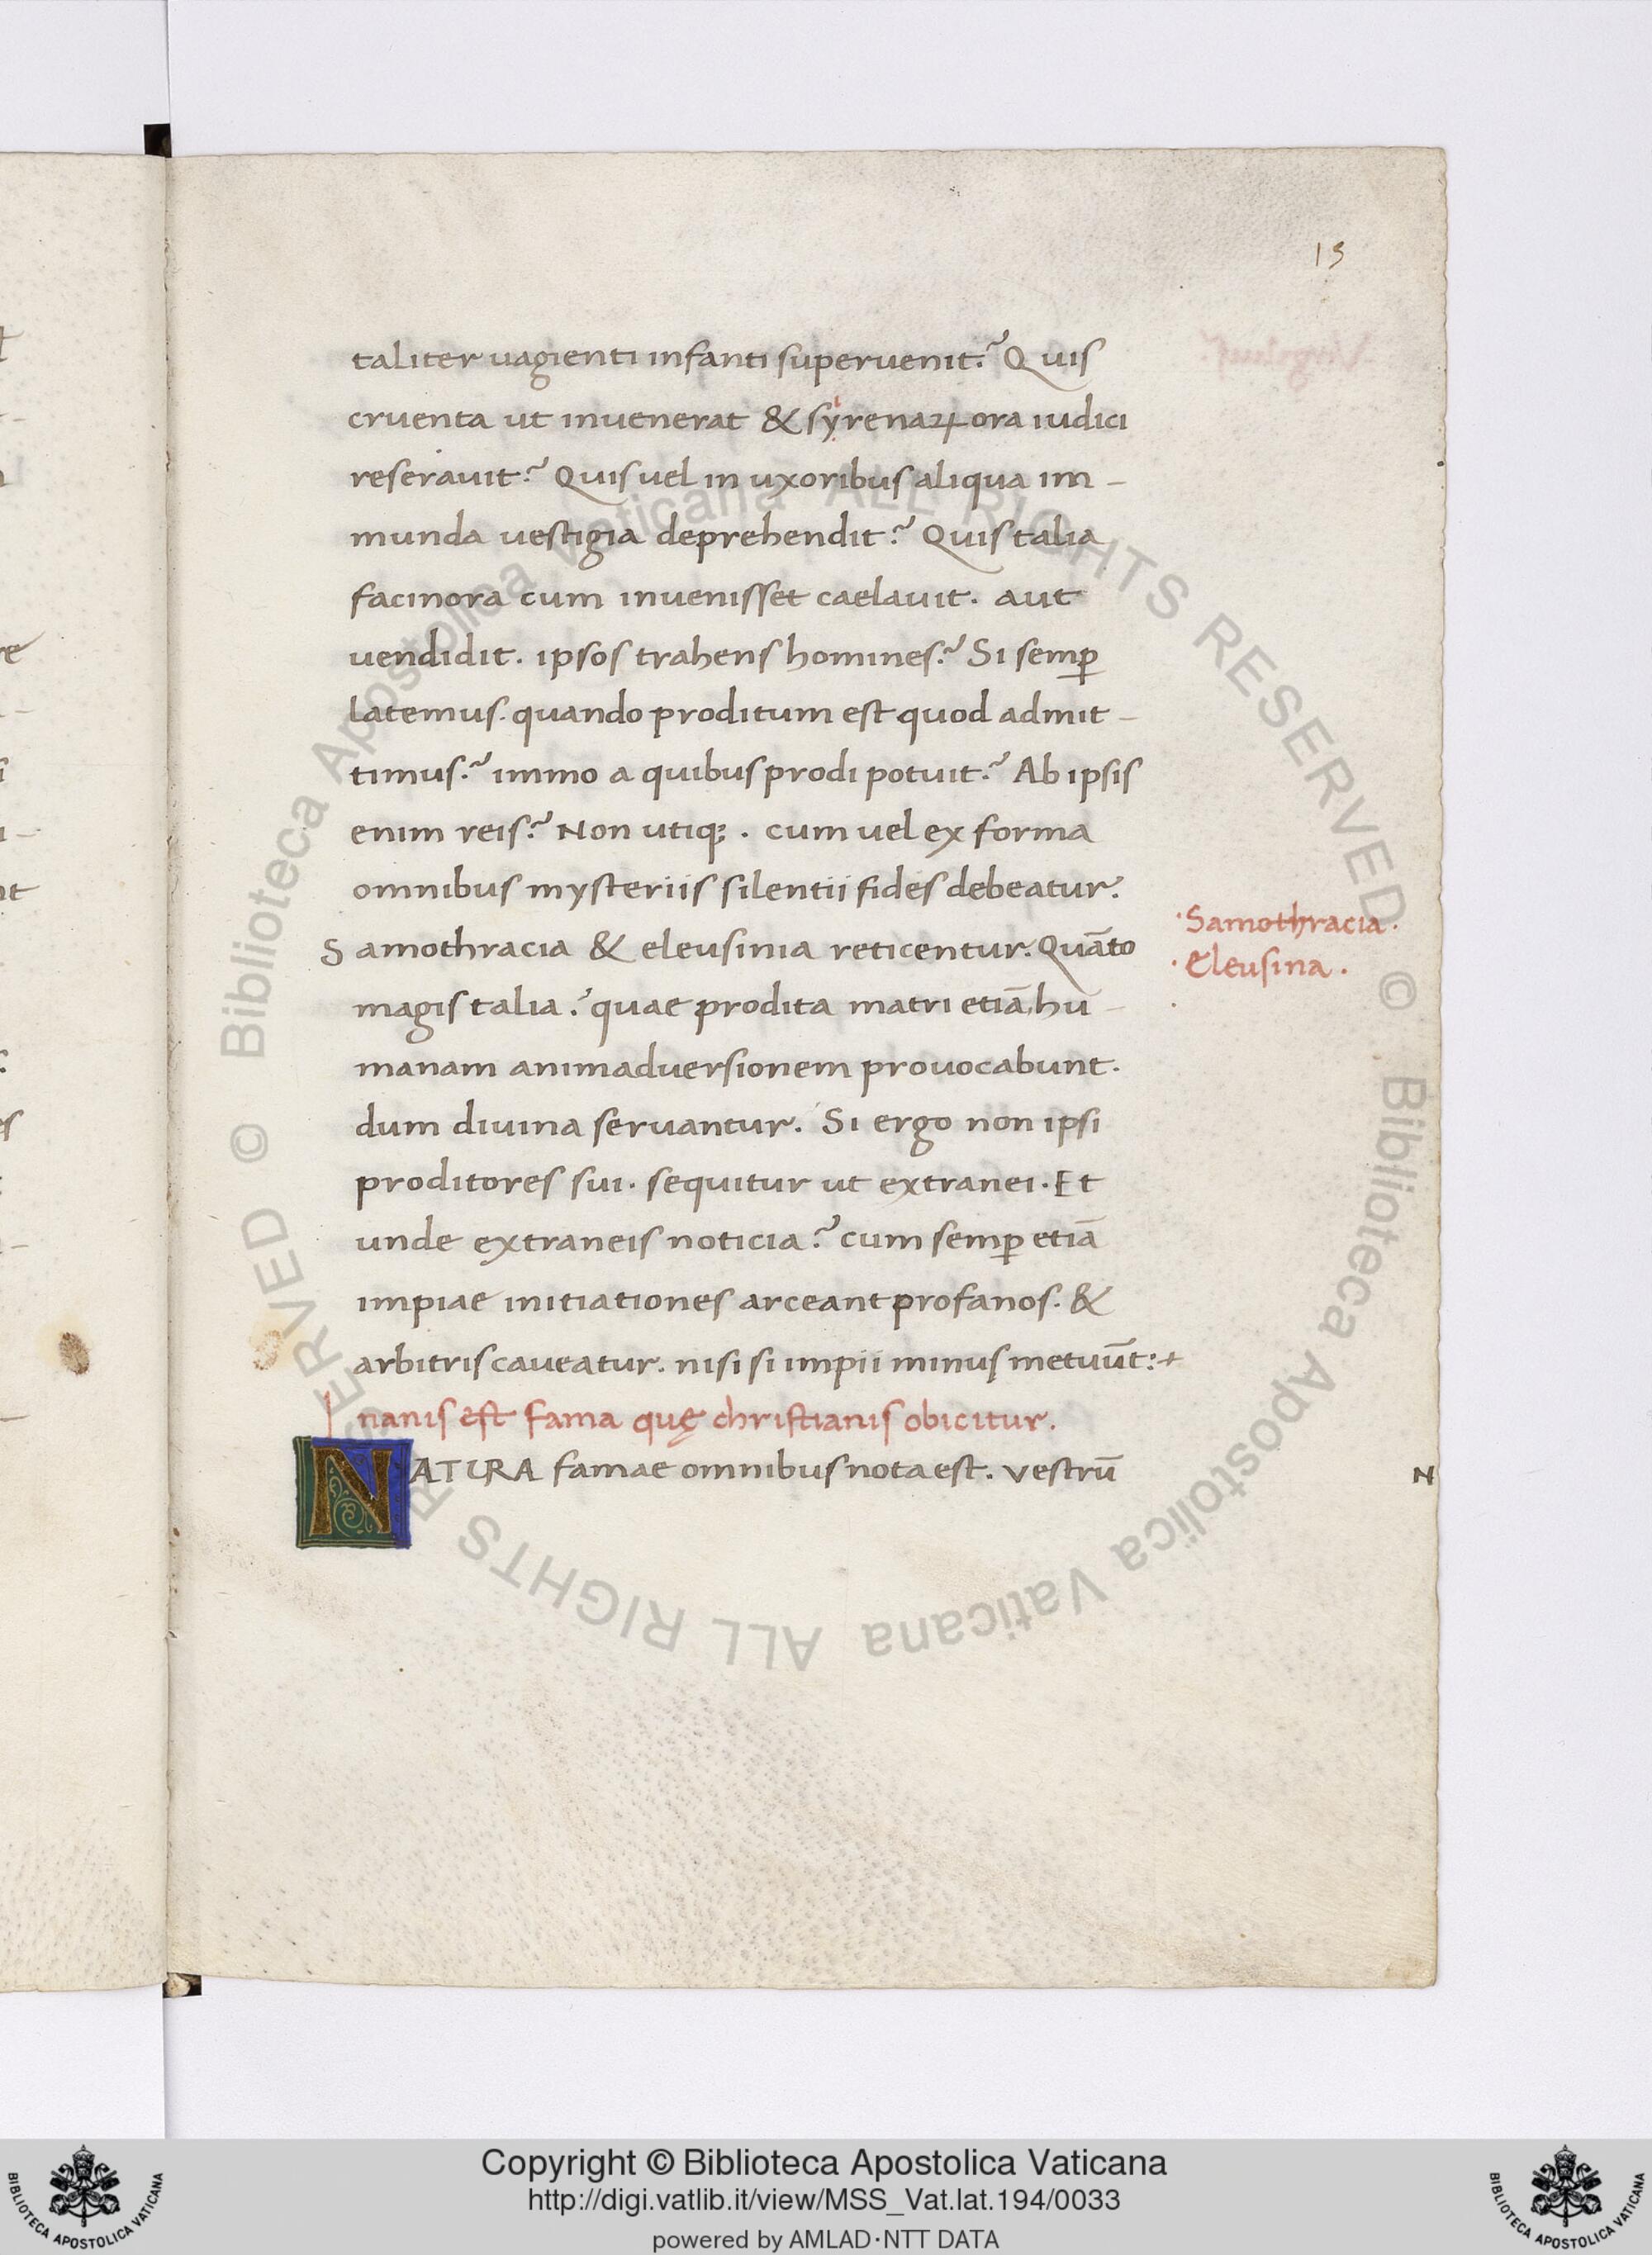 15
taliter uagienti infanti superuenit? Quis
cruenta ut inuenerat & syrenaꝝ ora iudici
reserauit? Quis vel in uxoribus aliqua im-
munda vestigia deprehendit? Quis talia
facinora cum inuenisset caelauit. aut
uendidit. ipsos trahens homines? Si semꝑ
latemus. quando proditum est quod admit-
timus? immo a quibus prodi potuit? Ab ipsis
enim reis? Non utiqꝫ. cum uel ex forma
omnibus mysteriis silentii fides debeatur.
Samothracia & eleusinia reticentur. Quāto
magis talia? quae prodita matri etiā hu-
manam animaduersionem prouocabunt.
dum diuina seruantur. Si ergo non ipsi
proditores sui. sequitur ut extranei. Et
unde extraneis noticia? cum semꝑ etiā
impiae initiationes arceant profanos. &
arbitris caueatur. nisi si impii minus metuūt:
Inanis est fama quę christianis obicitur.
NATURA famae omnibus nota est. vestrū
·Samothracia.
·Eleusina.
N
Copyright © Biblioteca Apostolica Vaticana
http://digi.vatlib.it/view/MSS_Vat.lat.194/0033
powered by AMLAD·NTT DATA
BIBLIOTECA APOSTOLICA VATICANA
BIBLIOTECA APOSTOLICA VATICANA
© Biblioteca Apostolica Vaticana ALL RIGHTS RESERVED
© Biblioteca Apostolica Vaticana ALL RIGHTS RESERVED